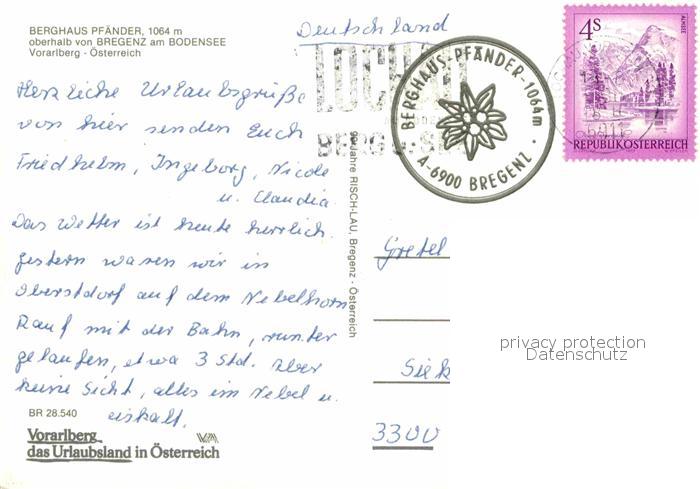 BERGHAUS PFÄNDER, 1064 m
oberhalb von BREGENZ am BODENSEE
Vorarlberg - Österreich
Deutschland
Herzliche Urlaubsgrüße
von hier senden Euch
Friedhelm, Ingeborg, Nicole
u. Claudia.
Das Wetter ist heute herrlich.
gestern waren wir in
Oberstdorf auf dem Nebelhorn
Rauf mit der Bahn, runter
gelaufen, etwa 3 Std. aber
keine Sicht, alles im Nebel u.
eiskalt.
BR 28.540
Vorarlberg
das Urlaubsland in Österreich
90 Jahre RISCH-LAU, Bregenz - Österreich
LOCHAU
BERGHAUS-PFÄNDER-1064m
A-6900 BREGENZ
4S
ALMSEE
REPUBLIK ÖSTERREICH
Gretel
privacy protection
Datenschutz
Siek
3300